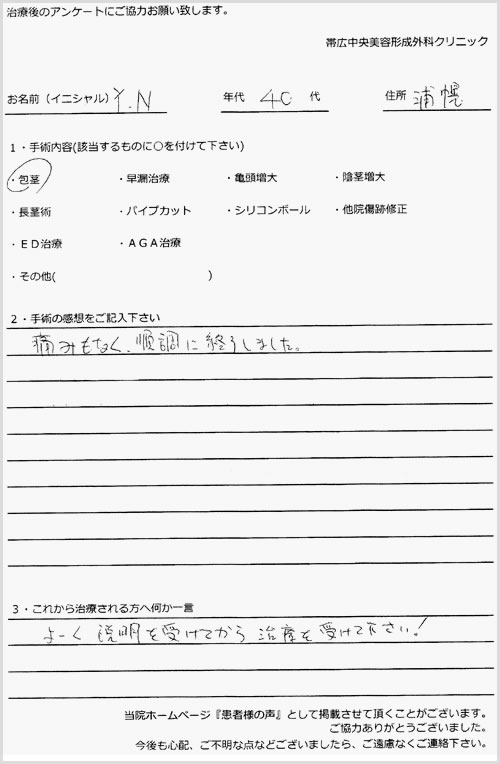 治療後のアンケートにご協力お願い致します。
帯広中央美容形成外科クリニック
お名前（イニシャル） Y.N 年代 40 代 住所 浦幌
１・手術内容(該当するものに○を付けて下さい)
・包茎 ・早漏治療 ・亀頭増大 ・陰茎増大
・長茎術 ・パイプカット ・シリコンボール ・他院傷跡修正
・ＥＤ治療 ・ＡＧＡ治療
・その他( )
２・手術の感想をご記入下さい
痛みもなく、順調に終了しました。
３・これから治療される方へ何か一言
よーく説明を受けてから治療を受けて下さい！
当院ホームページ『患者様の声』として掲載させて頂くことがございます。
ご協力ありがとうございました。
今後も心配、ご不明な点などございましたら、ご遠慮なくご連絡下さい。